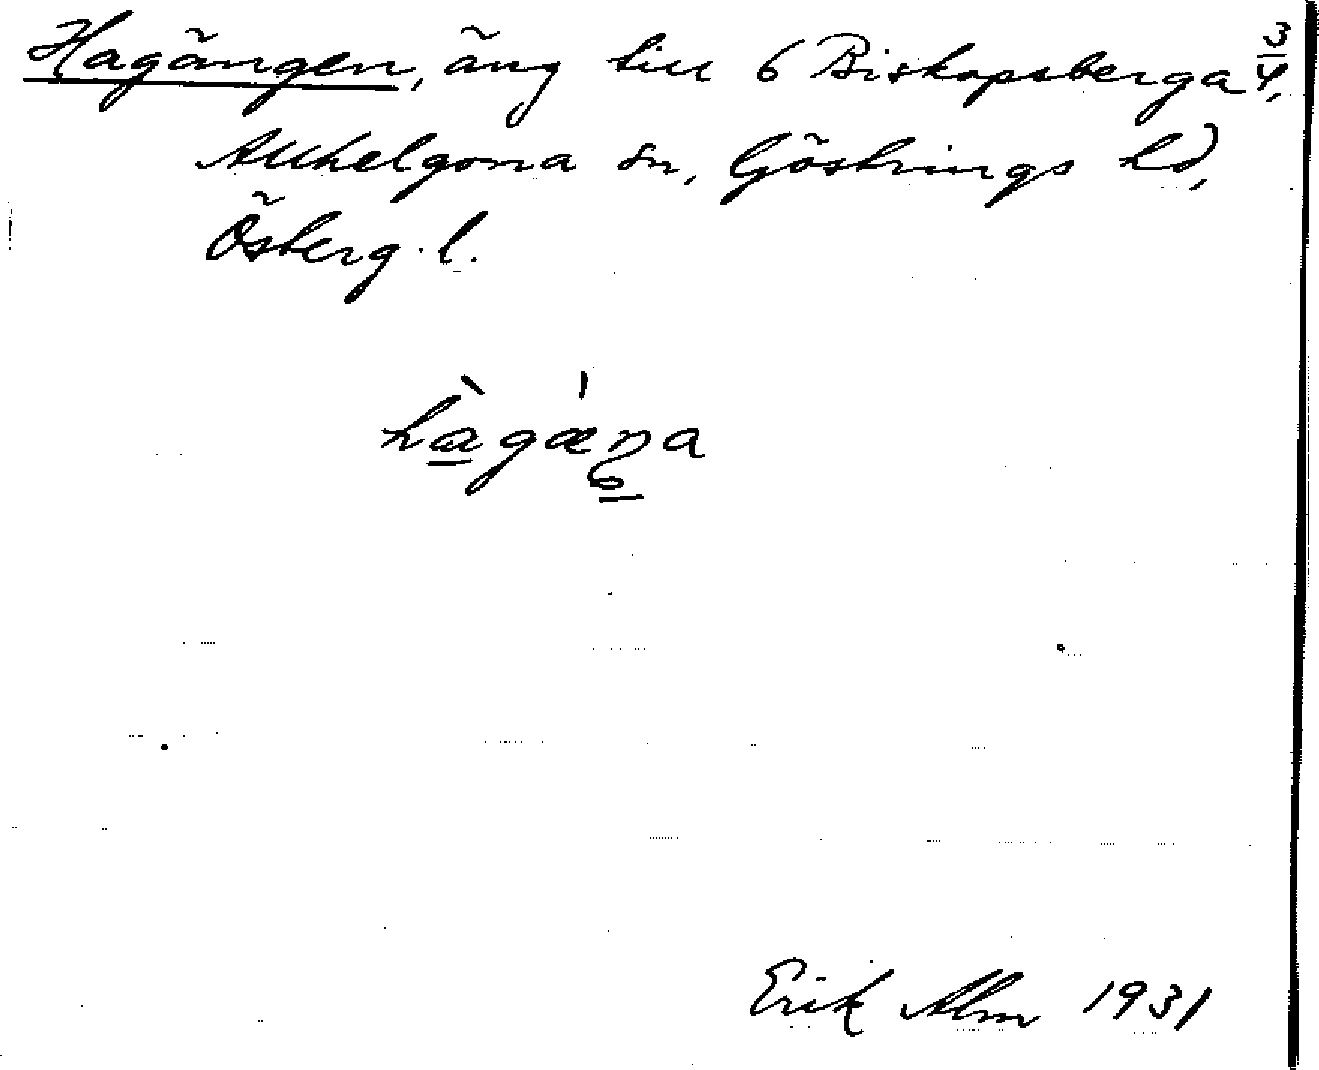 Hagängen, äng till 6 Biskopsberga 3/4,
Allhelgona sn, Göstrings hd,
Österg. l.
hàgæŋa
Erik Alm 1931